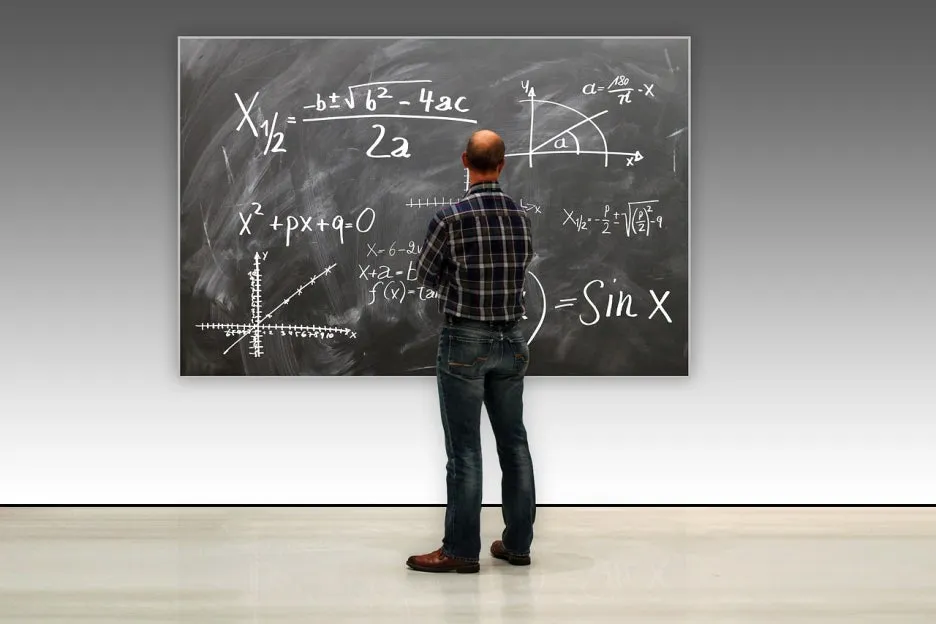 X₁/₂ = -b ± √b² - 4ac / 2a
y
a = 180/π · X
a
x
x
X² + px + q = 0
X₁/₂ = -p/2 ± √(p/2)² - q
X = 6 - 2
X + a = b
f(x) = tan
) = Sin X
y
x